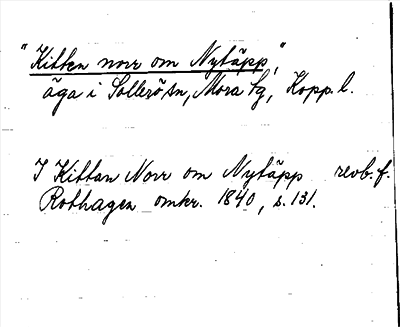 "Kitten norr om Nytäpp,"
äga i Sollerö sn, Mora tg, Kopp. l.
I Kittan Norr om Nytäpp revb. f.
Rothagen omkr. 1840, s. 131.